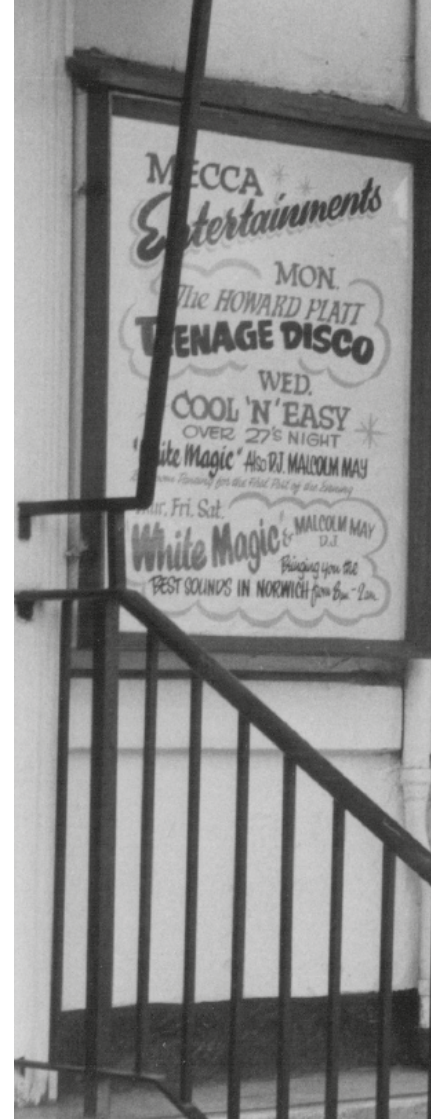 MECCA
Entertainments
MON.
The HOWARD PLATT
TEENAGE DISCO
WED.
COOL 'N' EASY
OVER 27'S NIGHT
"White Magic" Also D.J. MALCOLM MAY
Dancing for the First Part of the Evening
Thur. Fri. Sat.
"White Magic" & MALCOLM MAY
D.J.
Bringing you the
BEST SOUNDS IN NORWICH from 8pm - 2am.